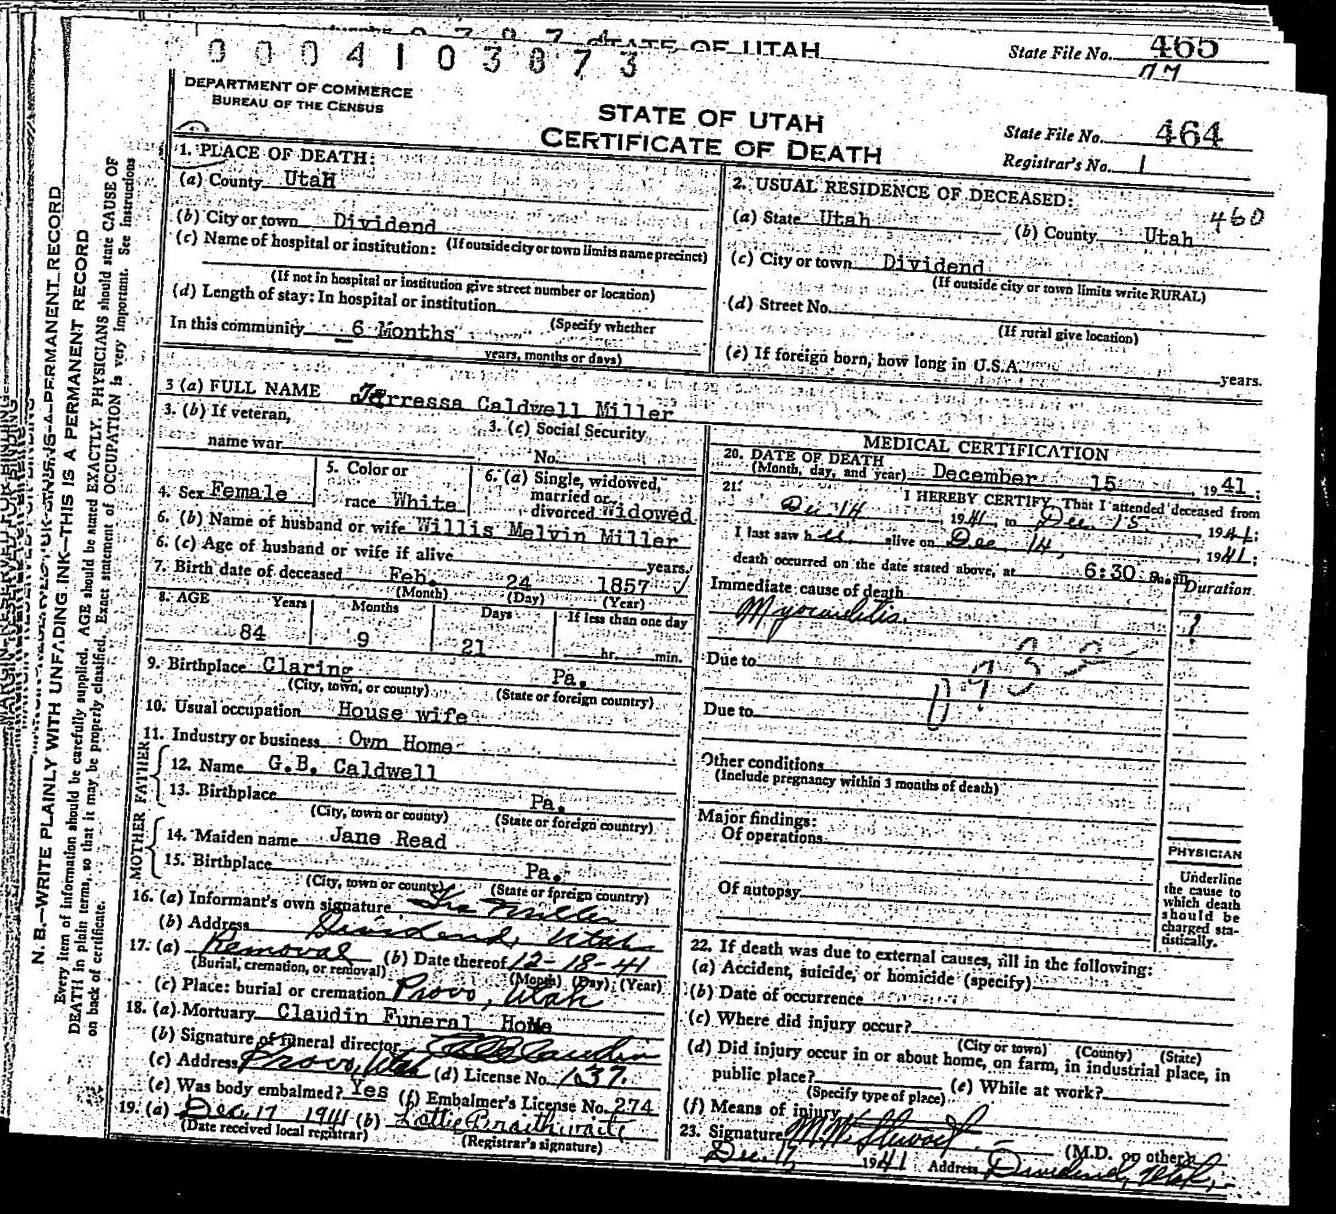 STATE OF UTAH
State File No. 465
0004103873
DEPARTMENT OF COMMERCE
BUREAU OF THE CENSUS
STATE OF UTAH
CERTIFICATE OF DEATH
State File No. 464
Registrar's No. 1
1. PLACE OF DEATH:
(a) County UtaH
(b) City or town Dividend
(c) Name of hospital or institution: (If outside city or town limits name precinct)
(If not in hospital or institution give street number or location)
(d) Length of stay: In hospital or institution
(Specify whether
In this community 6 Months
years, months or days)
2. USUAL RESIDENCE OF DECEASED:
460
(a) State Utah (b) County Utah
(c) City or town Dividend
(If outside city or town limits write RURAL)
(d) Street No.
(If rural give location)
(e) If foreign born, how long in U.S.A. years.
3 (a) FULL NAME Jerressa Caldwell Miller
3. (b) If veteran,
name war
3. (c) Social Security
No.
4. Sex Female
5. Color or
race White
6. (a) Single, widowed,
married or
divorced Widowed
6. (b) Name of husband or wife Willis Melvin Miller
6. (c) Age of husband or wife if alive years.
7. Birth date of deceased Feb. 24 1857 ✓
(Month) (Day) (Year)
8. AGE Years Months Days If less than one day
84 9 21 hr. min.
9. Birthplace Claring Pa.
(City, town, or county) (State or foreign country)
10. Usual occupation House wife
11. Industry or business Own Home
FATHER
12. Name G.B. Caldwell
13. Birthplace Pa.
(City, town or county) (State or foreign country)
MOTHER
14. Maiden name Jane Read
15. Birthplace Pa.
(City, town or county) (State or foreign country)
16. (a) Informant's own signature Ira Miller
(b) Address Dividend, Utah
17. (a) Removal (b) Date thereof 12-18-41
(Burial, cremation, or removal) (Month) (Day) (Year)
(c) Place: burial or cremation Provo, Utah
18. (a) Mortuary Claudin Funeral HoMe
(b) Signature of funeral director Claudin
(c) Address Provo, Utah (d) License No. 137.
(e) Was body embalmed? Yes (f) Embalmer's License No. 274
19. (a) Dec. 17 1941 (b) Lottie Braithwaite
(Date received local registrar) (Registrar's signature)
MEDICAL CERTIFICATION
20. DATE OF DEATH
(Month, day, and year) December 15, 1941;
21. I HEREBY CERTIFY, That I attended deceased from
Dec 14 1941, to Dec. 15 1941;
I last saw her alive on Dec. 14, 1941;
death occurred on the date stated above, at 6:30 a.m.
Immediate cause of death Duration
Myocarditis. ?
Due to 93-2
Due to
Other conditions
(Include pregnancy within 3 months of death)
Major findings:
Of operations
Of autopsy
PHYSICIAN
Underline
the cause to
which death
should be
charged sta-
tistically.
22. If death was due to external causes, fill in the following:
(a) Accident, suicide, or homicide (specify)
(b) Date of occurrence
(c) Where did injury occur?
(City or town) (County) (State)
(d) Did injury occur in or about home, on farm, in industrial place, in
public place? (e) While at work?
(Specify type of place)
(f) Means of injury
23. Signature (M.D. or other)
Dec. 17 1941 Address Dividend, Utah,
N. B.—WRITE PLAINLY WITH UNFADING INK—THIS IS A PERMANENT RECORD
Every item of information should be carefully supplied. AGE should be stated EXACTLY. PHYSICIANS should state CAUSE OF
DEATH in plain terms, so that it may be properly classified. Exact statement of OCCUPATION is very important. See instructions
on back of certificate.